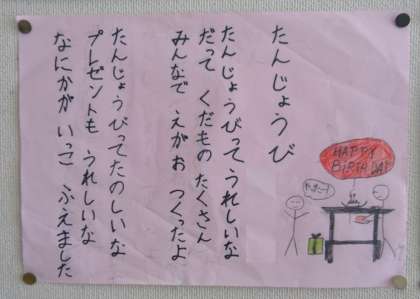 たんじょうび
たんじょうびってうれしいな
だって くだもの たくさん
みんなで えがお つくったよ
たんじょうびってたのしいな
プレゼントも うれしいな
なにかが いっこ ふえました
HAPPY
BIRTHDAY
やったー!